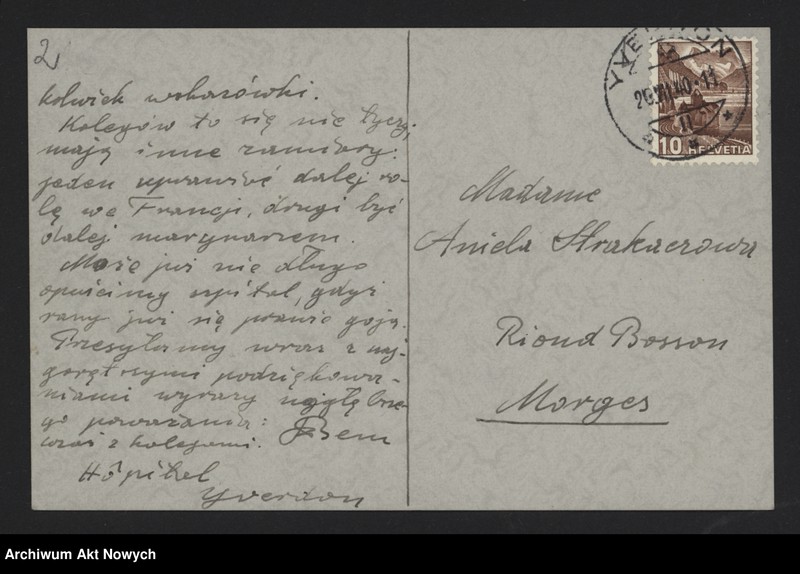 2
kolwiek wskazówki.
Kolegów to się nie tyczy,
mają inne zamiary:
jeden uprawiać dalej ro-
lę we Francji, drugi być
dalej marynarzem.
Może już nie długo
opuścimy szpital, gdyż
rany już się prawie goją.
Przesyłamy wraz z naj-
gorętszymi podziękowa-
niami wyrazy najgłębsze-
go poważania:
wraz z kolegami. JBem
Hôpital
Yverdon
YVERDON
10 HELVETIA
Madame
Aniela Strakaczowa
Riond Bosson
Morges
Archiwum Akt Nowych